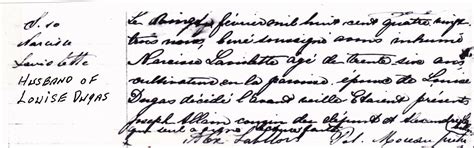 S. 10
Narcisse
Laviolette
HUSBAND OF
LOUISE DUGAS
Le vingt février mil huit cent quatre vingt
trois nous, curé soussigné avons inhumé
Narcisse Laviolette agé de trente six ans,
cultivateur en la paroisse, époux de Louise
Dugas décédé l'avant veille Etaient présents
Joseph Allain cousin du défunt et Alexandre
qui seul a signé lecture faite
Alex